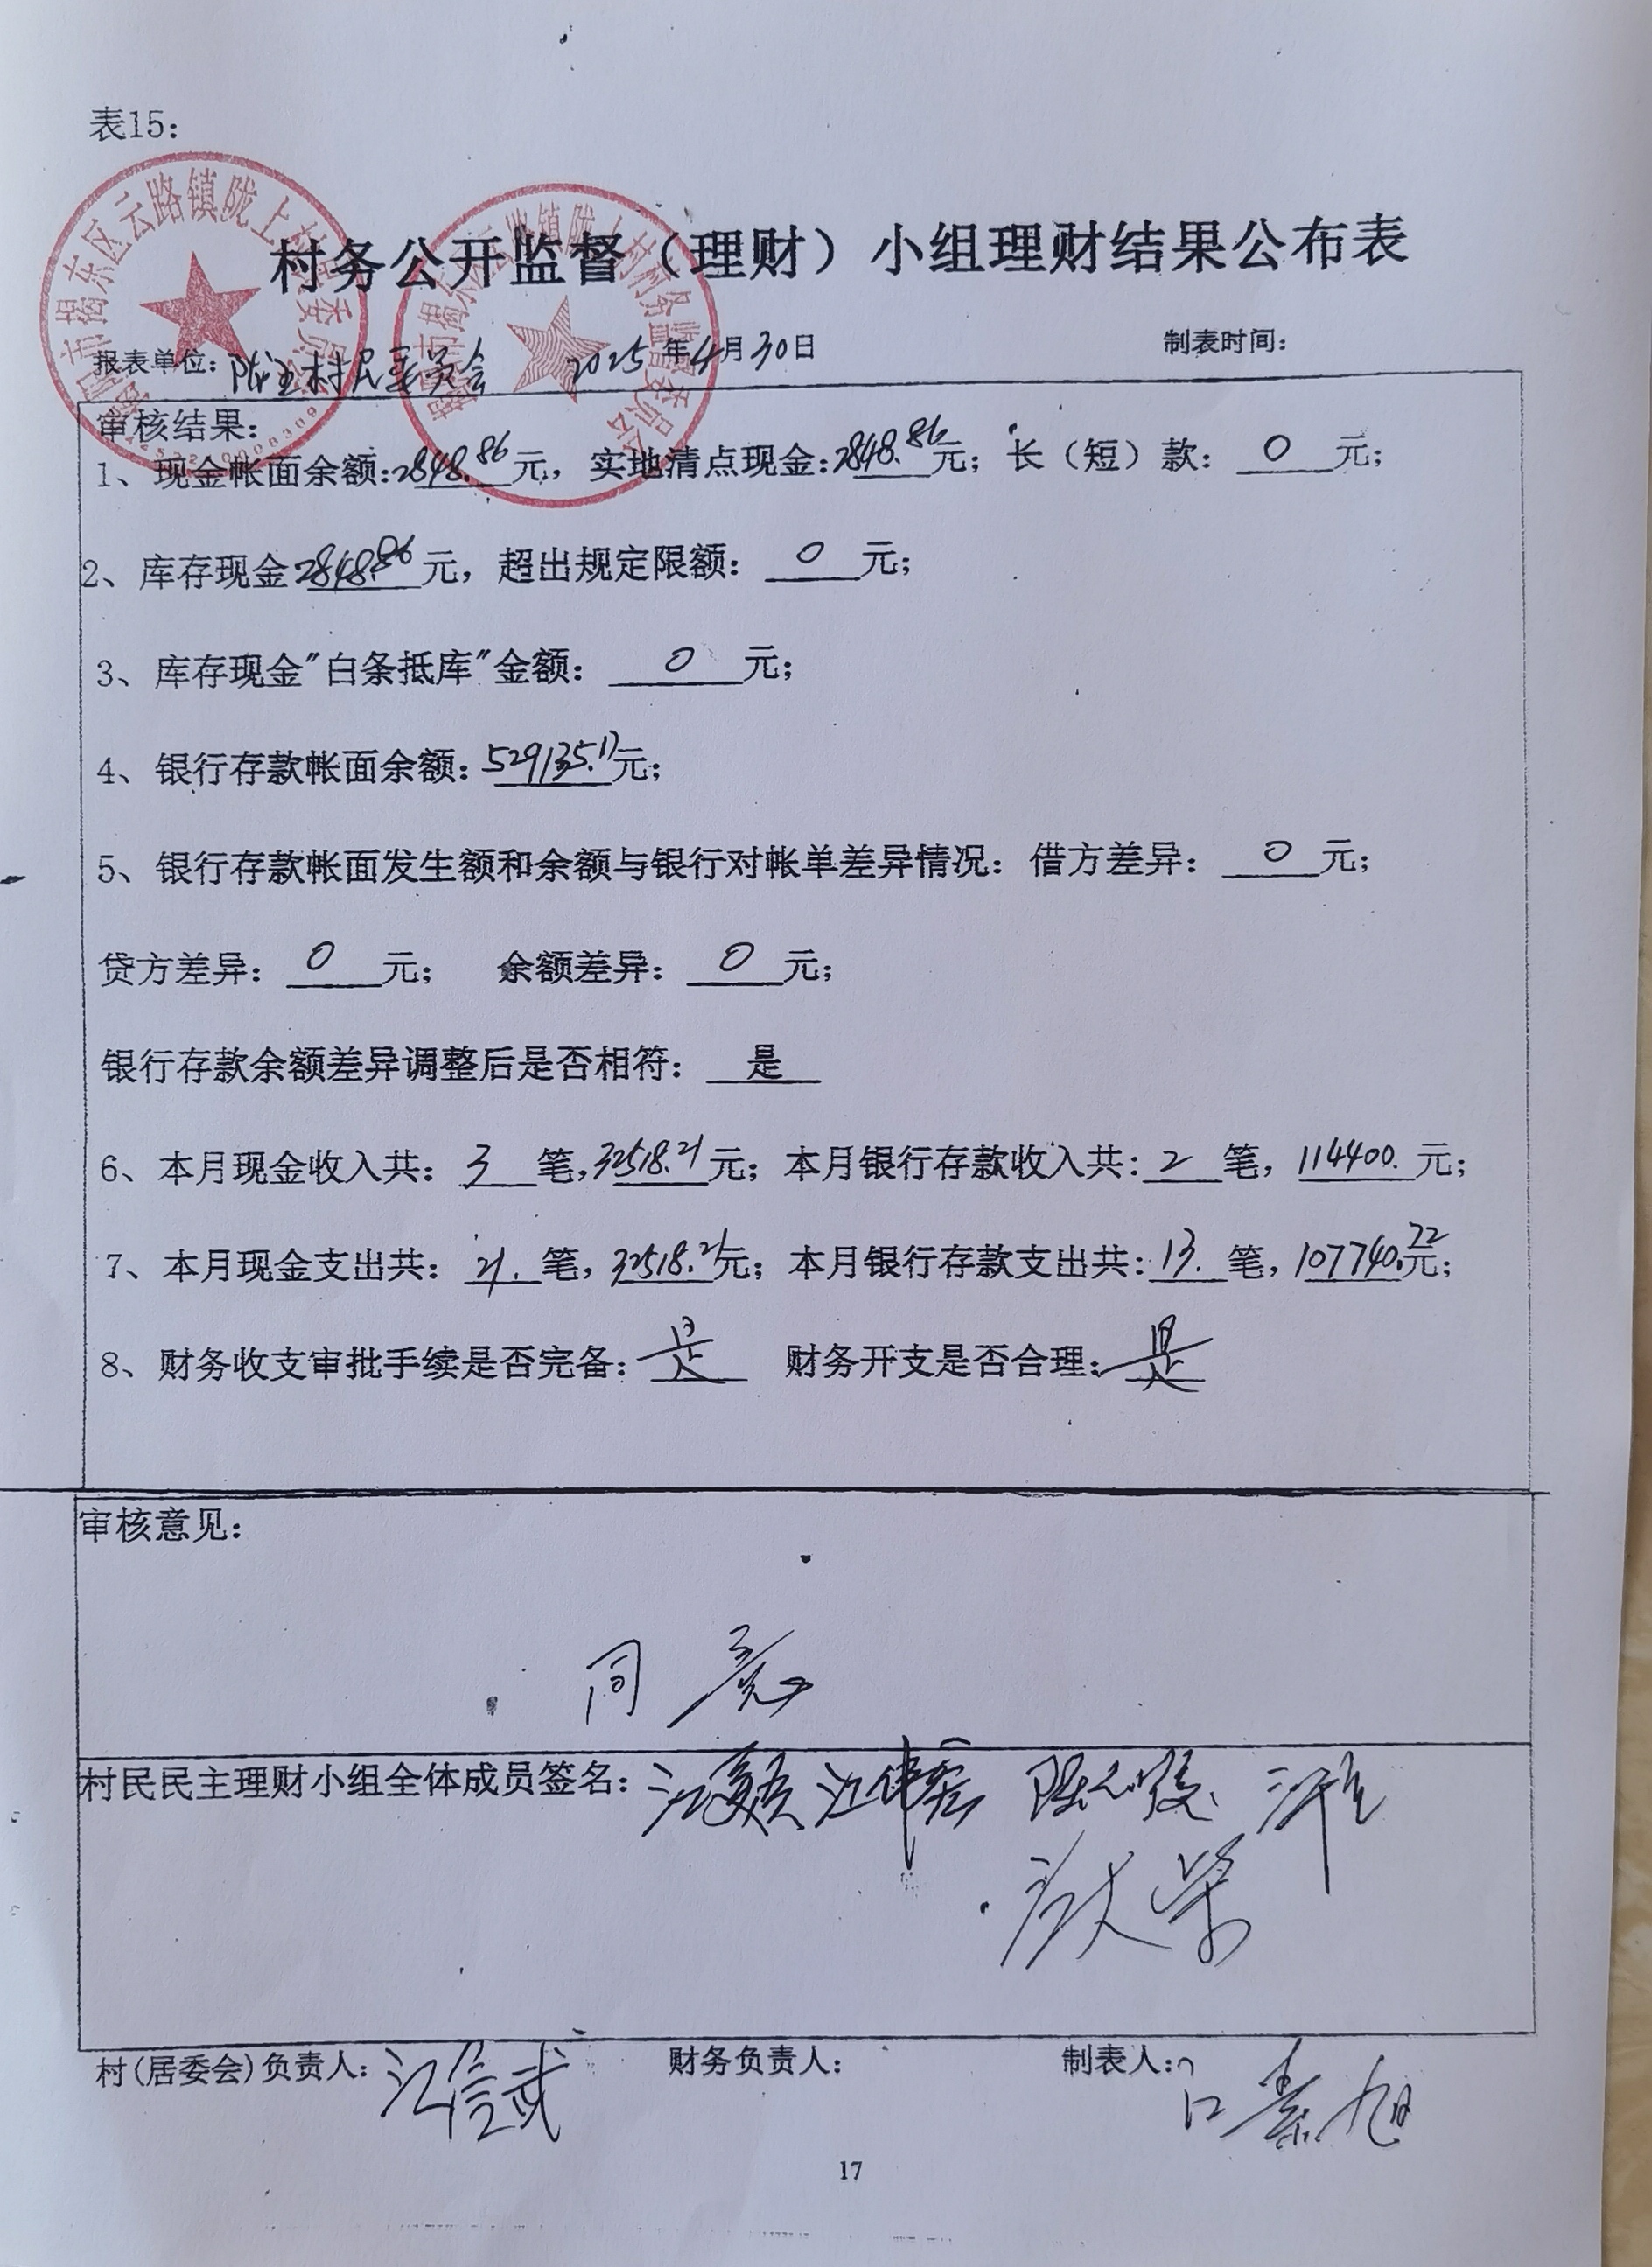 表15：
揭东区云路镇陇上村
村务公开监督（理财）小组理财结果公布表
报表单位：陇上村民委员会 2025年4月30日 制表时间：
审核结果：
1、现金帐面余额：2848.86元，实地清点现金：2848.86元；长（短）款：0元；
2、库存现金2848.86元，超出规定限额：0元；
3、库存现金"白条抵库"金额：0元；
4、银行存款帐面余额：529135.17元；
5、银行存款帐面发生额和余额与银行对帐单差异情况：借方差异：0元；
贷方差异：0元； 余额差异：0元；
银行存款余额差异调整后是否相符：是
6、本月现金收入共：3笔，32518.21元；本月银行存款收入共：2笔，114400.元；
7、本月现金支出共：21.笔，32518.21元；本月银行存款支出共：13.笔，107740.22元；
8、财务收支审批手续是否完备：是 财务开支是否合理：是
审核意见：
同意
村民民主理财小组全体成员签名：
村(居委会)负责人： 财务负责人： 制表人：
17